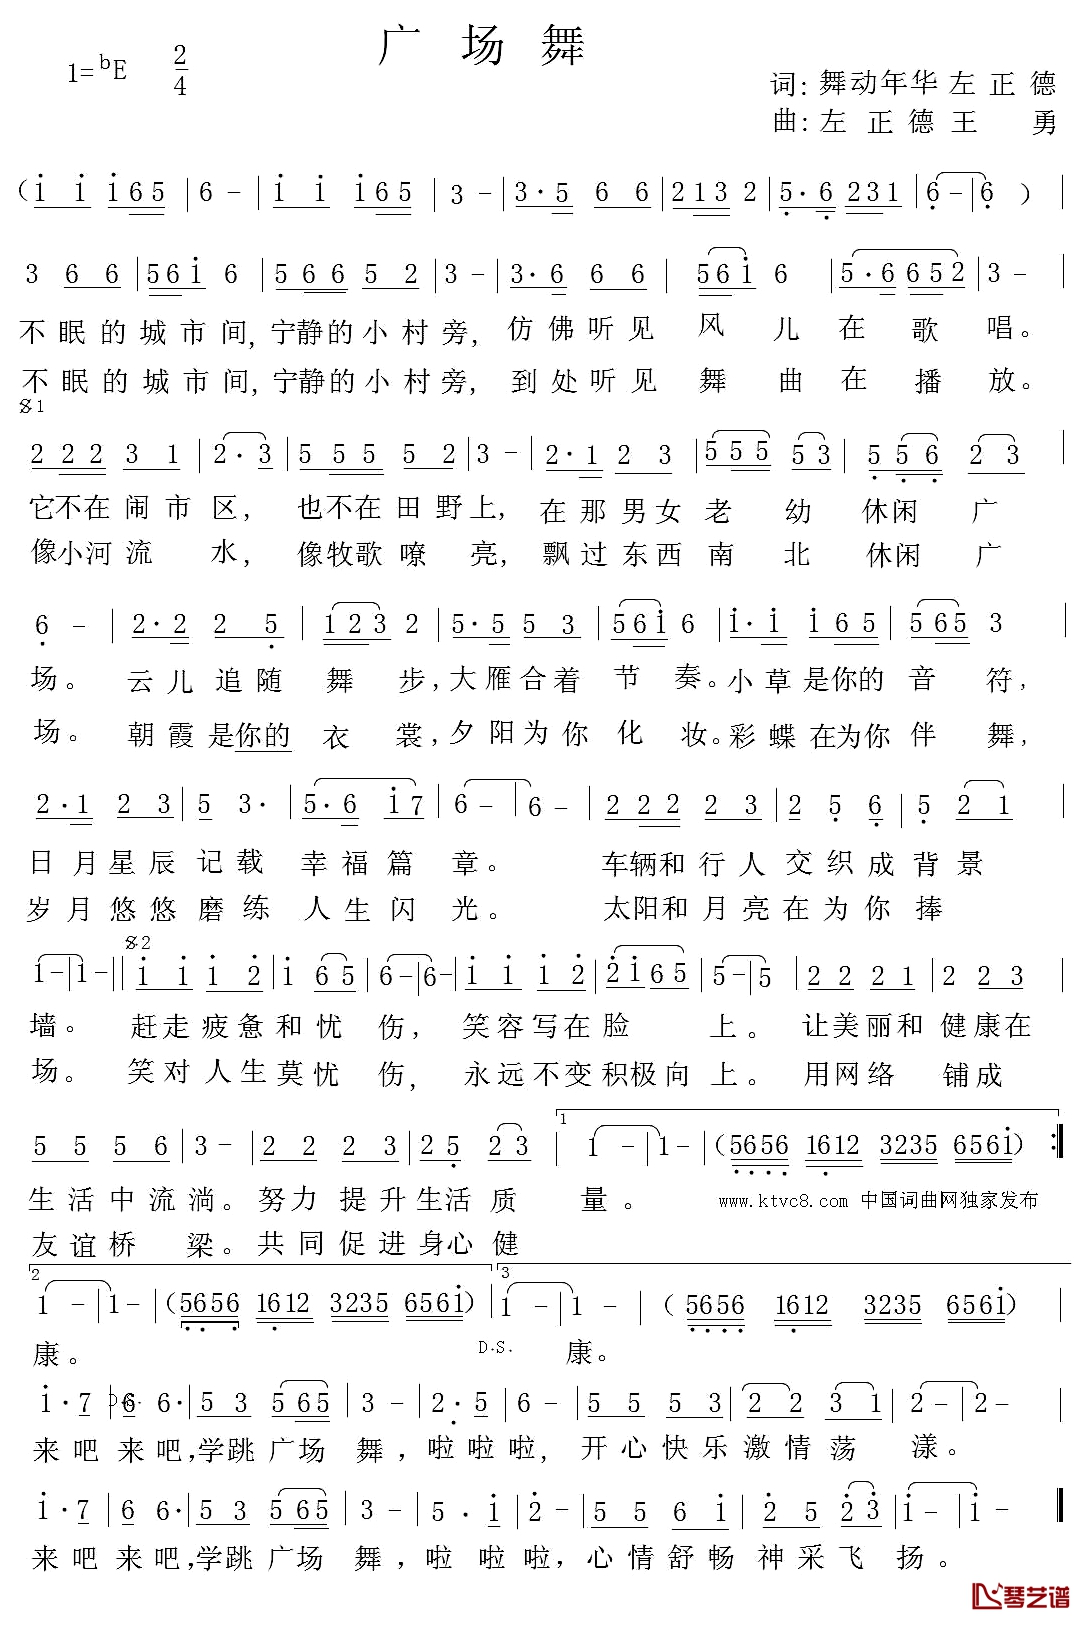 广场舞
1=bE 2/4
词：舞动年华 左正德
曲：左正德 王勇
（i i i65 | 6 - | i i i65 | 3 - | 3·5 6 6 | 2132 | 5·6 231 | 6 - | 6 ） |
3 6 6 | 56i 6 | 566 5 2 | 3 - | 3·6 6 6 | 56i 6 | 5·6652 | 3 - |
不眠的城市间，宁静的小村旁，仿佛听见风儿在歌唱。
不眠的城市间，宁静的小村旁，到处听见舞曲在播放。
𝄋1
222 3 1 | 2·3 | 555 5 2 | 3 - | 2·1 2 3 | 555 53 | 556 2 3 |
它不在闹市区，也不在田野上，在那男女老幼休闲广
像小河流水，像牧歌嘹亮，飘过东西南北休闲广
6 - | 2·2 2 5 | 123 2 | 5·5 5 3 | 56i 6 | i·i i65 | 565 3 |
场。云儿追随舞步，大雁合着节奏。小草是你的音符，
场。朝霞是你的衣裳，夕阳为你化妆。彩蝶在为你伴舞，
2·1 2 3 | 5 3· | 5·6 i7 | 6 - | 6 - | 222 2 3 | 2 5 6 | 5 2 1 |
日月星辰记载幸福篇章。车辆和行人交织成背景
岁月悠悠磨练人生闪光。太阳和月亮在为你捧
𝄋2
1 - | 1 - || i i i 2 | i 65 | 6 - | 6 - | i i i 2 | 2i65 | 5 - | 5 | 2 2 2 1 | 2 2 3 |
墙。赶走疲惫和忧伤，笑容写在脸上。让美丽和健康在
场。笑对人生莫忧伤，永远不变积极向上。用网络铺成
5 5 5 6 | 3 - | 2 2 2 3 | 2 5 2 3 | 1 1 - | 1 - |（5656 1612 3235 656i）:|
生活中流淌。努力提升生活质量。 www.ktvc8.com 中国词曲网独家发布
友谊桥梁。共同促进身心健
2 1 - | 1 - |（5656 1612 3235 656i）| 3 1 - | 1 - |（5656 1612 3235 656i）|
康。 D.S. 康。
i·7 | 6 6· | 5 3 565 | 3 - | 2·5 | 6 - | 5 5 5 3 | 2 2 3 1 | 2 - | 2 - |
来吧来吧，学跳广场舞，啦啦啦，开心快乐激情荡漾。
i·7 | 6 6· | 5 3 565 | 3 - | 5·i | 2 - | 5 5 6 i | 2 5 2 3 | i - | i - ‖
来吧来吧，学跳广场舞，啦啦啦，心情舒畅神采飞扬。
琴艺谱